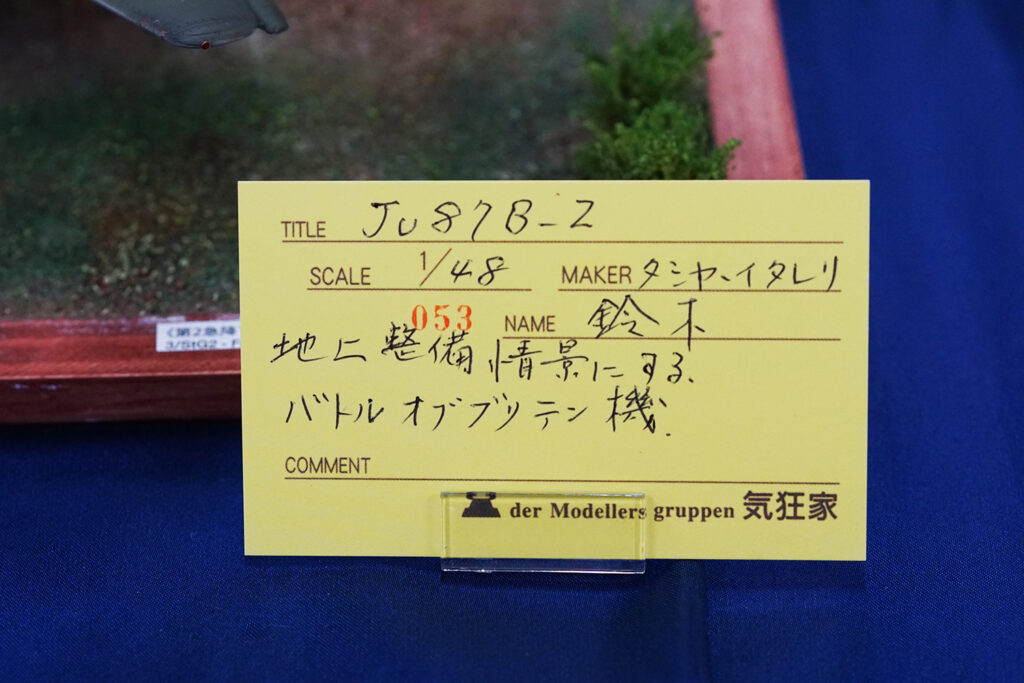 TITLE Ju87B-2
SCALE 1/48 MAKER タミヤ、イタレリ
053 NAME 鈴木
地上整備情景にする。
バトルオブブリテン機。
COMMENT
der Modellers gruppen 気狂家
《第2急降
3/StG2 - F